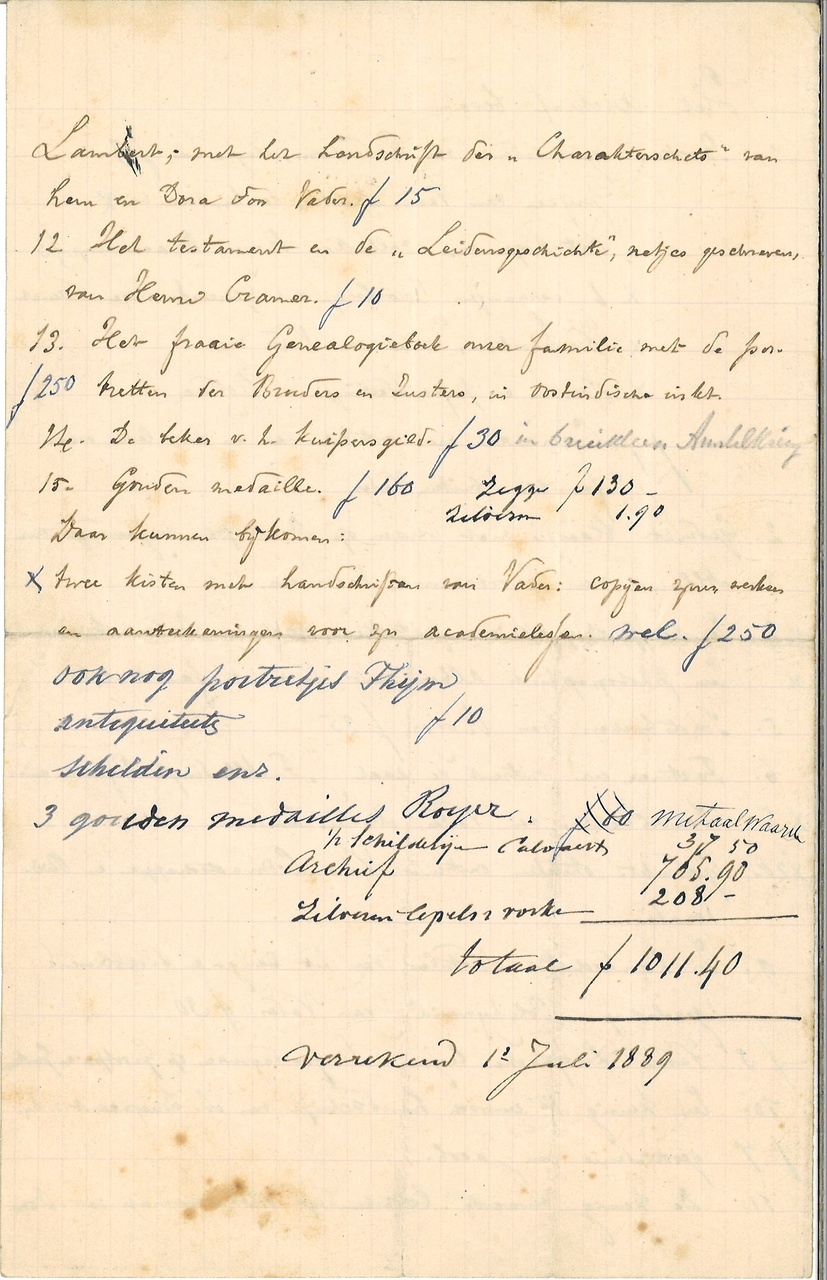 Lambert; met het handschrift der „Charakterschets" van
hem en Dora door Vader. f 15
12 Het testament en de „Leidensgeschichte", netjes geschreven,
van Herm Cramer. f 10
13. Het fraaie Genealogieboek onzer familie met de por-
f 250 tretten der Broeders en Zusters, in oostindische inkt.
14. De beker v. h. kuipersgild. f 30 in bruikleen
15. Gouden medaille. f 160 Zegge f 130 –
Zilveren 1.90
Daar kunnen bijkomen:
x twee kisten met handschriften van Vader: copijen zijner werken
en aanteekeningen voor zijn academielessen. wel. f 250
ook nog portretjes Thijm
antiquiteits f 10
schelden enz.
3 gouden medailles Royer. metaal waarde
1/2 Schilderijen Calvaert 37 50
Archief 705.90
Zilveren lepels & vorke 208 –
totaal f 1011.40
Verrekend 1e Juli 1889